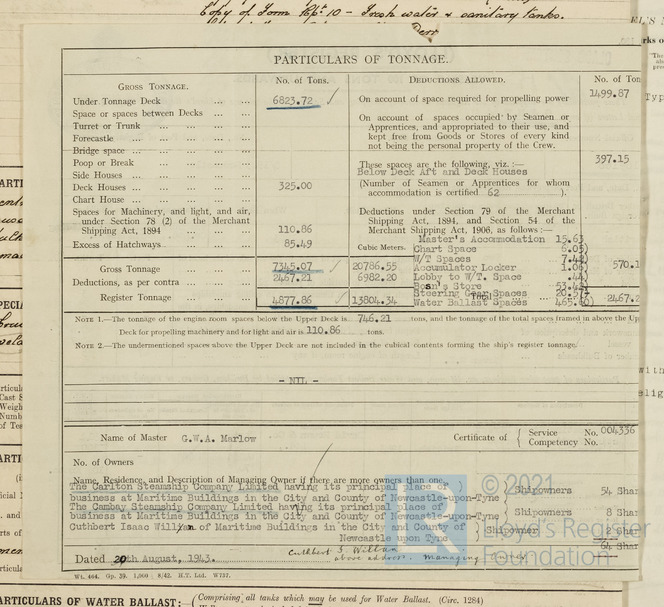 Copy of Form Rpt 10 – Fresh water & sanitary tanks.
PARTICULARS OF TONNAGE.
GROSS TONNAGE. No. of Tons. DEDUCTIONS ALLOWED. No. of Ton
Under Tonnage Deck ... ... 6823.72 On account of space required for propelling power 1499.87
Space or spaces between Decks ... ... On account of spaces occupied by Seamen or
Turret or Trunk ... ... Apprentices, and appropriated to their use, and
Forecastle ... ... kept free from Goods or Stores of every kind
Bridge space ... ... not being the personal property of the Crew.
Poop or Break ... ... These spaces are the following, viz. :— 397.15
Side Houses ... ... Below Deck Aft and Deck Houses
Deck Houses ... ... 325.00 (Number of Seamen or Apprentices for whom
Chart House ... ... accommodation is certified 62 ).
Spaces for Machinery, and light, and air, Deductions under Section 79 of the Merchant
under Section 78 (2) of the Merchant Shipping Act, 1894, and Section 54 of the
Shipping Act, 1894 ... ... 110.86 Merchant Shipping Act, 1906, as follows :—
Excess of Hatchways ... ... 85.49 Cubic Meters. Master's Accommodation 15.63
Chart Space 6.05)
W/T Spaces
Gross Tonnage ... 7345.07 20786.55 Accumulator Locker 1.06) 570.1
Deductions, as per contra ... 2467.21 6982.20 Lobby to W/T. Space .44)
Bosn's Store
Steering Gear Spaces
Register Tonnage ... 4877.86 13804.34 Total Water Ballast Spaces 2467.2
NOTE 1.—The tonnage of the engine room spaces below the Upper Deck is 746.21 tons, and the tonnage of the total spaces framed in above the Up
Deck for propelling machinery and for light and air is 110.86 tons.
NOTE 2.—The undermentioned spaces above the Upper Deck are not included in the cubical contents forming the ship's register tonnage:
– NIL –
Name of Master G.W.A. Marlow Certificate of { Service No. 004336
Competency No.
No. of Owners
Name, Residence, and Description of Managing Owner if there are more owners than one
The Carlton Steamship Company Limited having its principal place of )
business at Maritime Buildings in the City and County of Newcastle-upon-Tyne ) Shipowners 54 Shar
The Cambay Steamship Company Limited having its principal place of )
business at Maritime Buildings in the City and County of Newcastle-upon-Tyne ) Shipowners 8 Shar
Cuthbert Isaac Willian of Maritime Buildings in the City and County of )
Newcastle upon Tyne ) Shipowner
64 Shar
Dated 20th August, 1943. Cuthbert I. Willian
above address. Managing Owner
Wt. 464. Gp. 39. 1,000 8/42. H.T. Ltd. W757.
PARTICULARS OF WATER BALLAST:— (Comprising all tanks which may be used for Water Ballast. (Circ. 1284)
© 2021
Lloyd's Register
Foundation